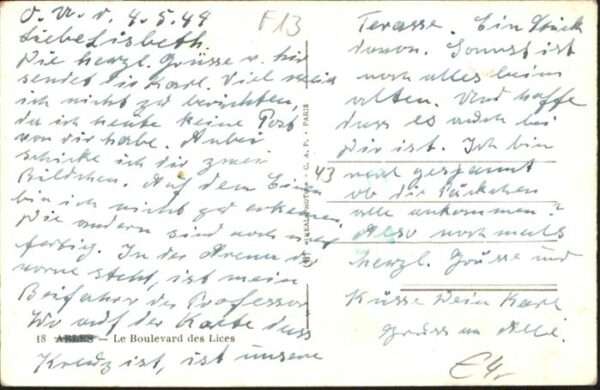 O. U. d. 4.5.44
F13
Liebe Lisbeth.
Die herzl. Grüsse v. hir
sendet dir Karl. Viel weis
ich nicht zu berichten,
da ich heute keine Post
von dir habe. Anbei
schicke ich dir zwei
Bildchen. Auf dem Einen
bin ich nicht zu erkennen
Die andern sind noch nicht
fertig. In der Arena da
vorne steht, ist mein
Beifahrer der Professor
Wo auf der Karte dass
18 ARLES — Le Boulevard des Lices
Kreuz ist, ist unsere
Terasse. Ein Stück
davon. Sonnst ist
noch alles beim
alten. Und hoffe
dass es auch bei
Dir ist. Ich bin
43 mal gespannt
ob die Päckchen
alle ankommen?
Also noch mals
herzl. Grüsse und
Küsse Dein Karl
Gruss an Alle.
C. A. P. - PARIS